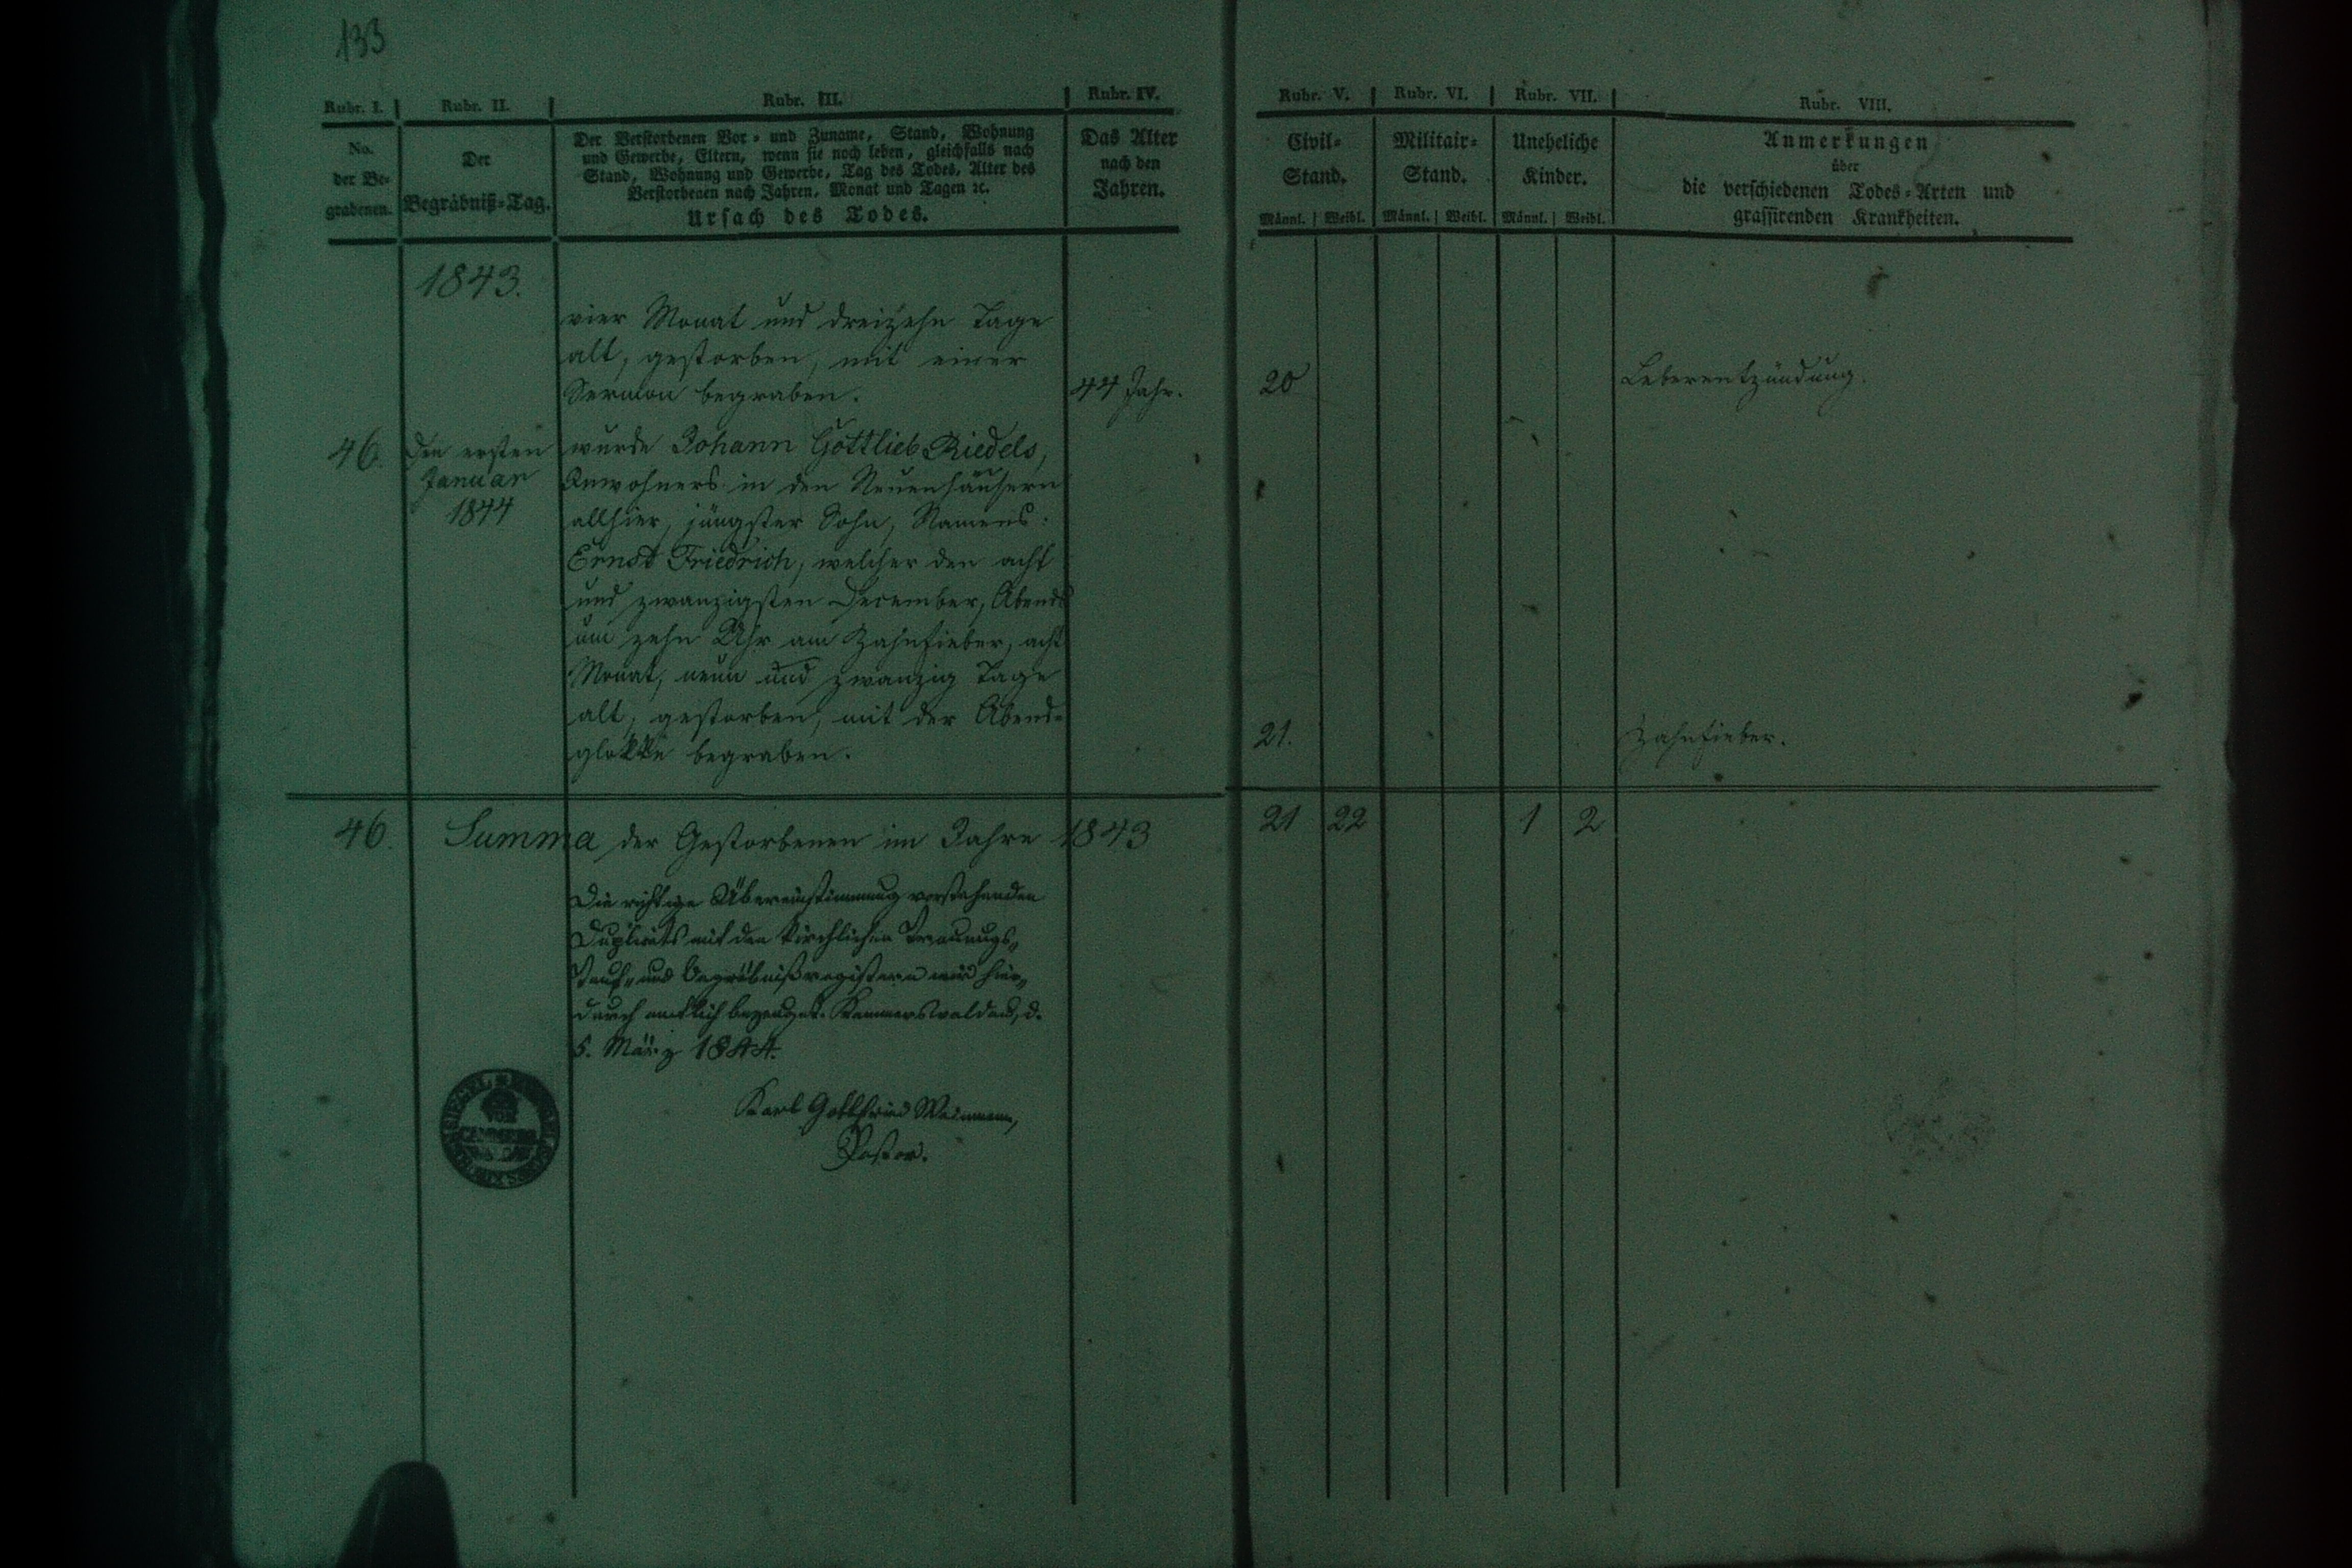 133
Rubr. I.
No.
der Be-
grabenen.
Rubr. II.
Der
Begräbniß-Tag.
Rubr. III.
Der Verstorbenen Vor- und Zuname, Stand, Wohnung
und Gewerbe, Eltern, wenn sie noch leben, gleichfalls nach
Stand, Wohnung und Gewerbe, Tag des Todes, Alter des
Verstorbenen nach Jahren, Monat und Tagen ꝛc.
Ursach des Todes.
Rubr. IV.
Das Alter
nach den
Jahren.
Rubr. V.
Civil-
Stand.
Männl. Weibl.
Rubr. VI.
Militair-
Stand.
Männl. Weibl.
Rubr. VII.
Uneheliche
Kinder.
Männl. Weibl.
Rubr. VIII.
Anmerkungen
über
die verschiedenen Todes-Arten und
grassirenden Krankheiten.
1843.
vier Monat und dreizehn Tage
alt, gestorben, mit einer
Sermon begraben.
44 Jahr.
20
Leberentzündung.
46.
Den ersten
Januar
1844
wurde Johann Gottlieb Riedels,
Inwohners in den Neuenhäusern
allhier, jüngster Sohn, Namens:
Ernst Friedrich, welcher den acht
und zwanzigsten December, Abends
um zehn Uhr am Zahnfieber, acht
Monat, neun und zwanzig Tage
alt, gestorben, mit der Abend-
glokke begraben.
21.
Zahnfieber.
46. Summa der Gestorbenen im Jahre 1843 21 22 1 2
Die richtige Übereinstimmung vorstehenden
Duplicats mit den kirchlichen Trauungs-
Tauf- und Begräbnißregistern wird hier-
durch amtlich bezeuget. Kammerswaldau, d.
5. März 1844.
Karl Gottfried
Pastor.
VON
CAMMERS
WALDAU